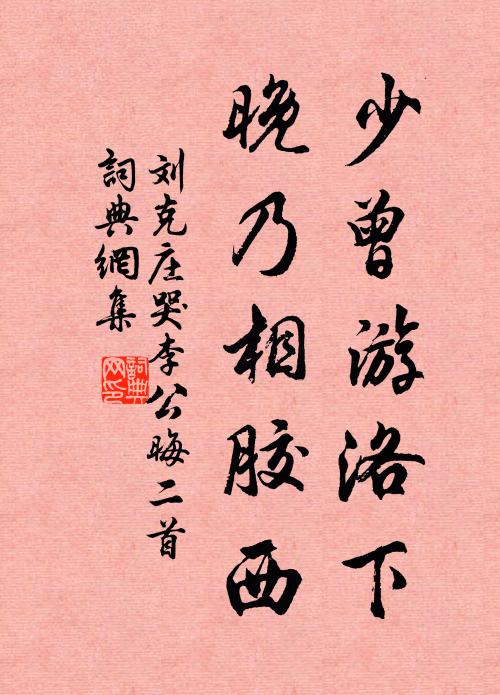 少曾游洛下
晚乃相胶西
刘克庄哭李公晦二首
詞典網集
詞典網印